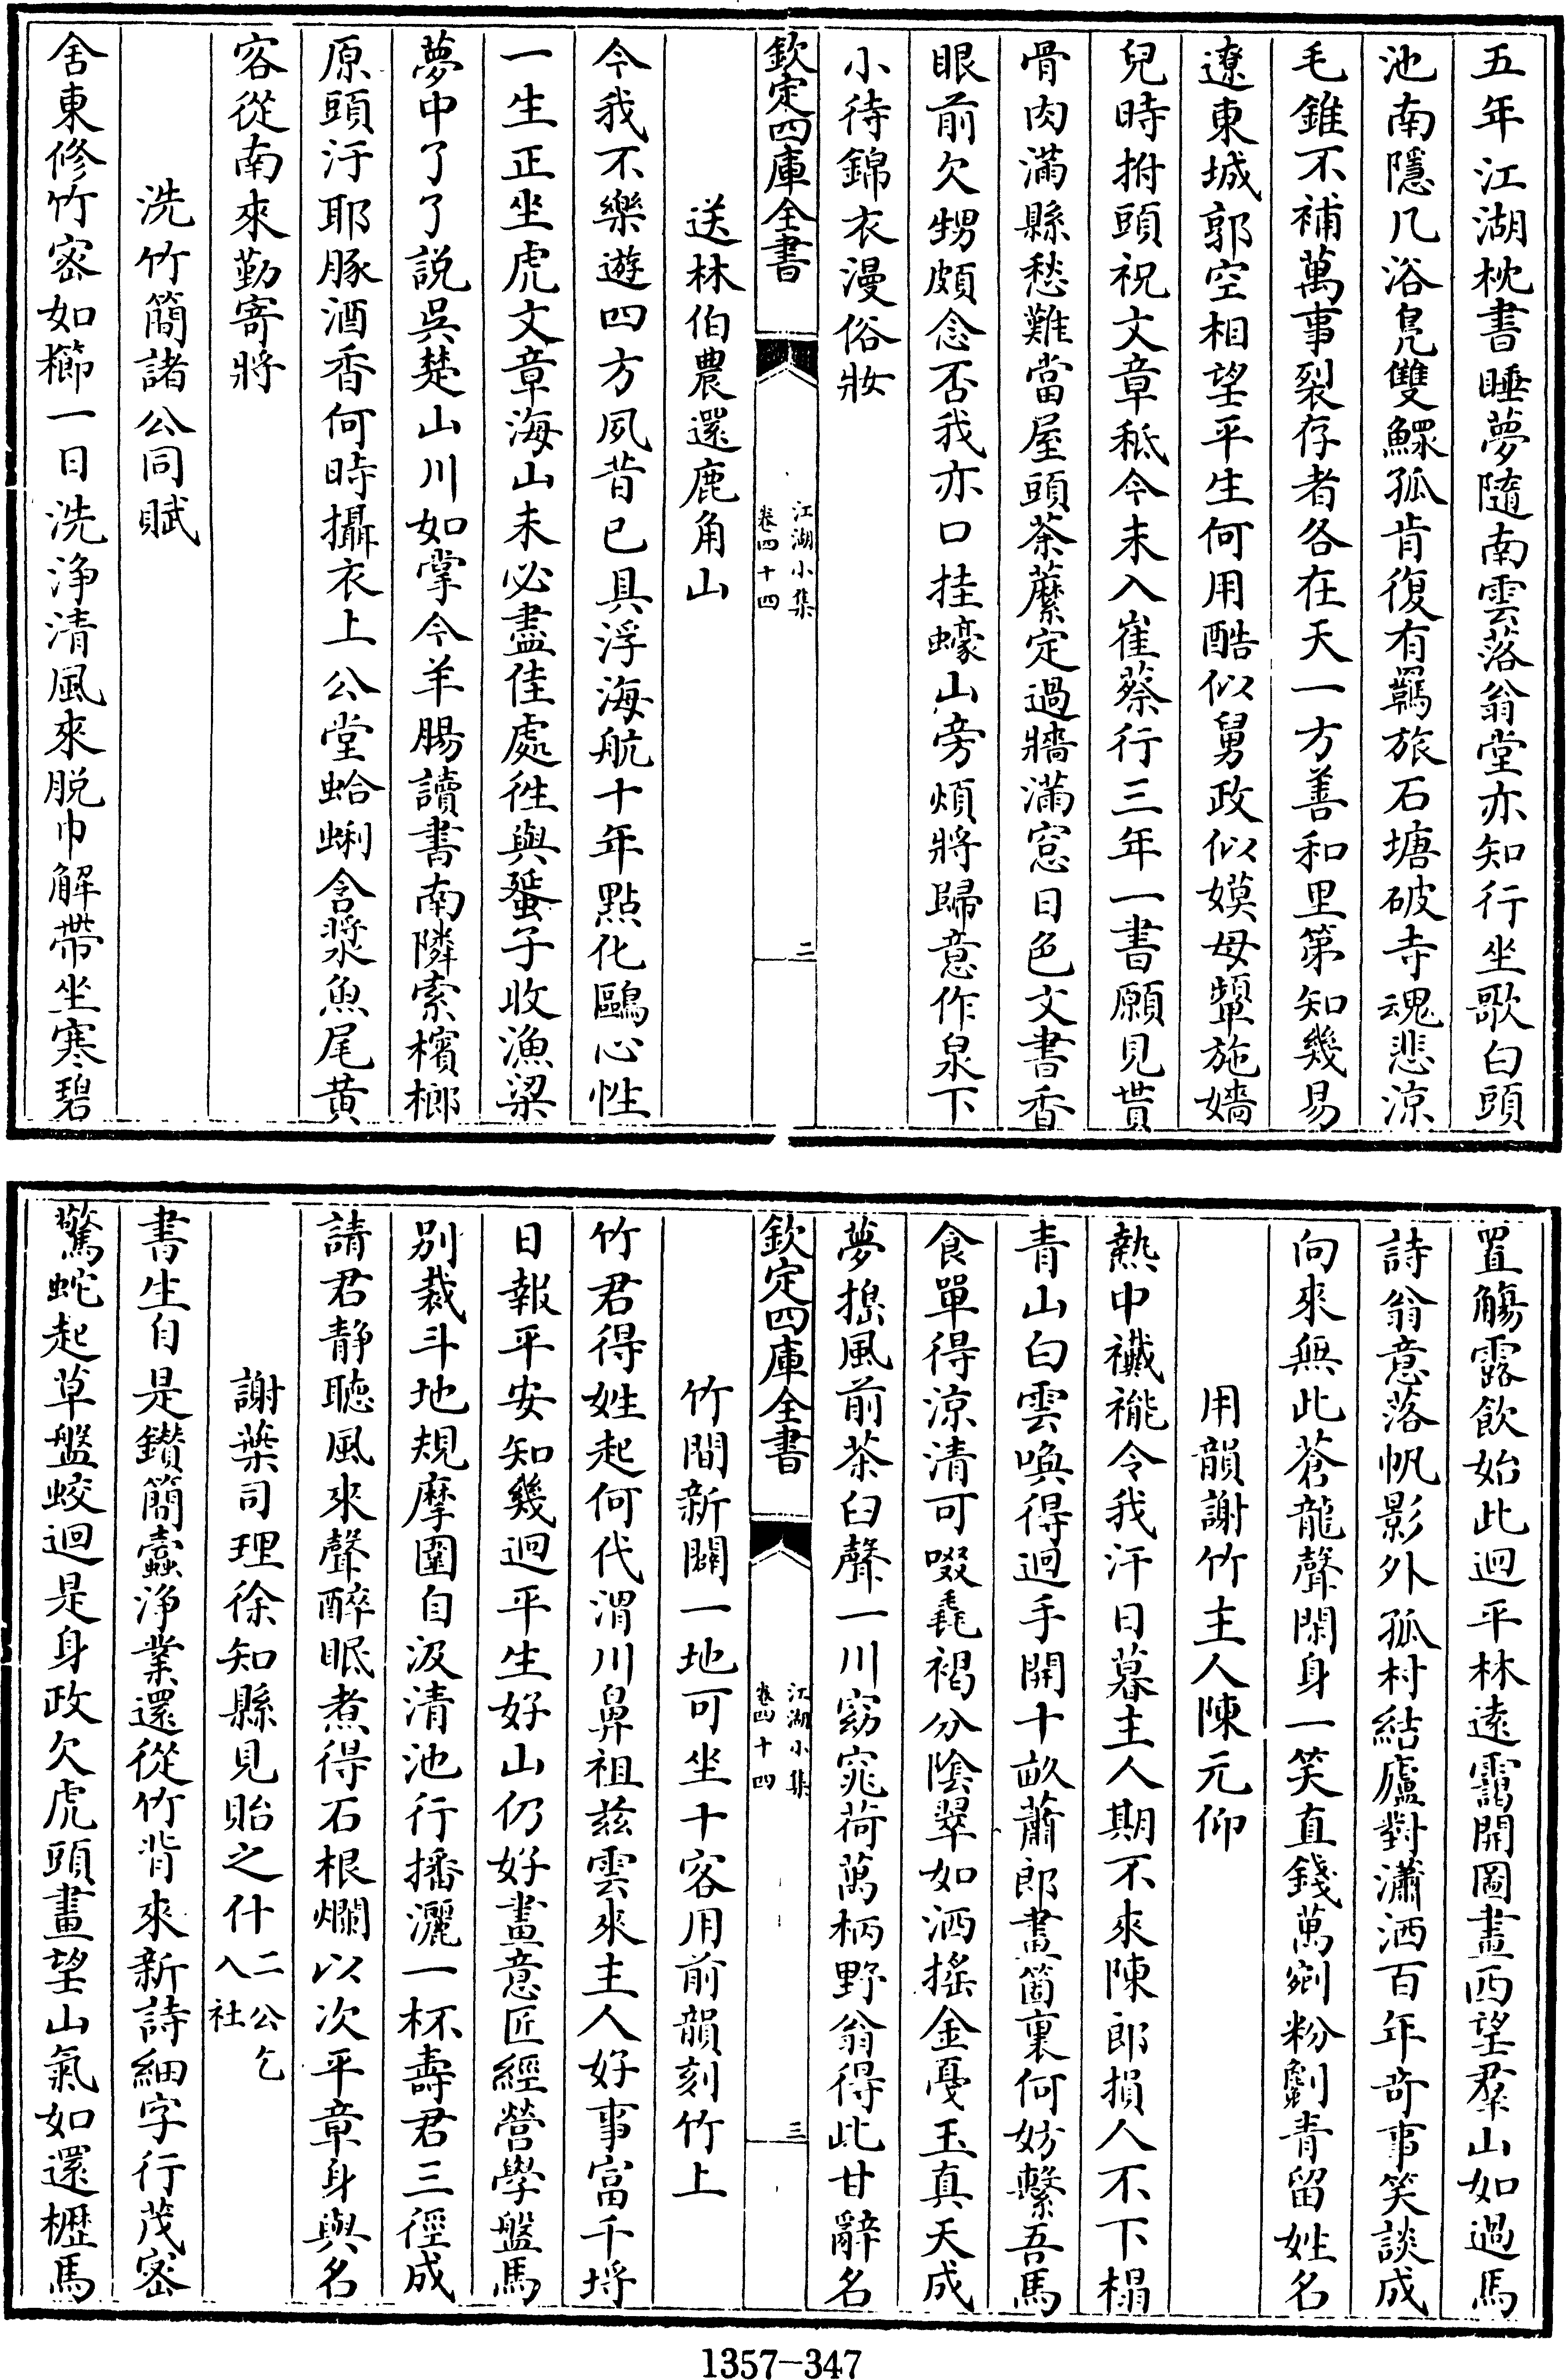 五年江湖枕書睡夢隨南雲落翁堂亦知行坐歌白頭
池南隱几浴鳧雙鰥孤肯復有羈旅石塘破寺魂悲涼
毛錐不補萬事裂存者各在天一方善和里第知幾易
遼東城郭空相望平生何用酷似舅政似嫫母顰施嬙
兒時拊頭祝文章秪今未入崔蔡行三年一書願見貰
骨肉滿縣愁難當屋頭荼蘼定過牆滿窓日色文書香
眼前欠甥頗念否我亦口挂蠔山旁煩將歸意作泉下
小待錦衣漫俗妝
欽定四庫全書
江湖小集
卷四十四
二
送林伯農還鹿角山
今我不樂遊四方夙昔已具浮海航十年點化鷗心性
一生正坐虎文章海山未必盡佳處徃與蜑子收漁梁
夢中了了說吳楚山川如掌今羊腸讀書南隣索檳榔
原頭汙耶豚酒香何時攝衣上公堂蛤蜊含漿魚尾黄
容從南來勤寄將
洗竹簡諸公同賦
舍東修竹密如櫛一日洗淨清風來脱巾解帶坐寒碧
置觴露飲始此迴平林逺靄開圖畫西望羣山如過馬
詩翁意落帆影外孤村結廬對瀟洒百年竒事笑談成
向來無此蒼龍聲閑身一笑直錢萬剜粉劚青留姓名
用韻謝竹主人陳元仰
熱中襶褦令我汗日暮主人期不來陳郎損人不下榻
青山白雲喚得迴手開十畝蕭郎畫箇裏何妨繫吾馬
食單得涼清可啜毳褐分陰翠如洒搖金戞玉真天成
夢搗風前茶臼聲一川窈窕荷萬柄野翁得此甘辭名
欽定四庫全書
江湖小集
卷四十四
三
竹間新闢一地可坐十客用前韻刻竹上
竹君得姓起何代渭川鼻祖兹雲來主人好事富千埒
日報平安知幾迴平生好山仍好畫意匠經營學盤馬
别裁斗地規摩圍自汲清池行播灑一杯壽君三徑成
請君靜聽風來聲醉眠煮得石根爛以次平章身與名
謝葉司理徐知縣見貽之什二公乞入社
書生自是鑽簡蠹淨業還從竹背來新詩細字行茂密
驚蛇起草盤蛟迴是身政欠虎頭畫望山氣如還櫪馬
1357-347